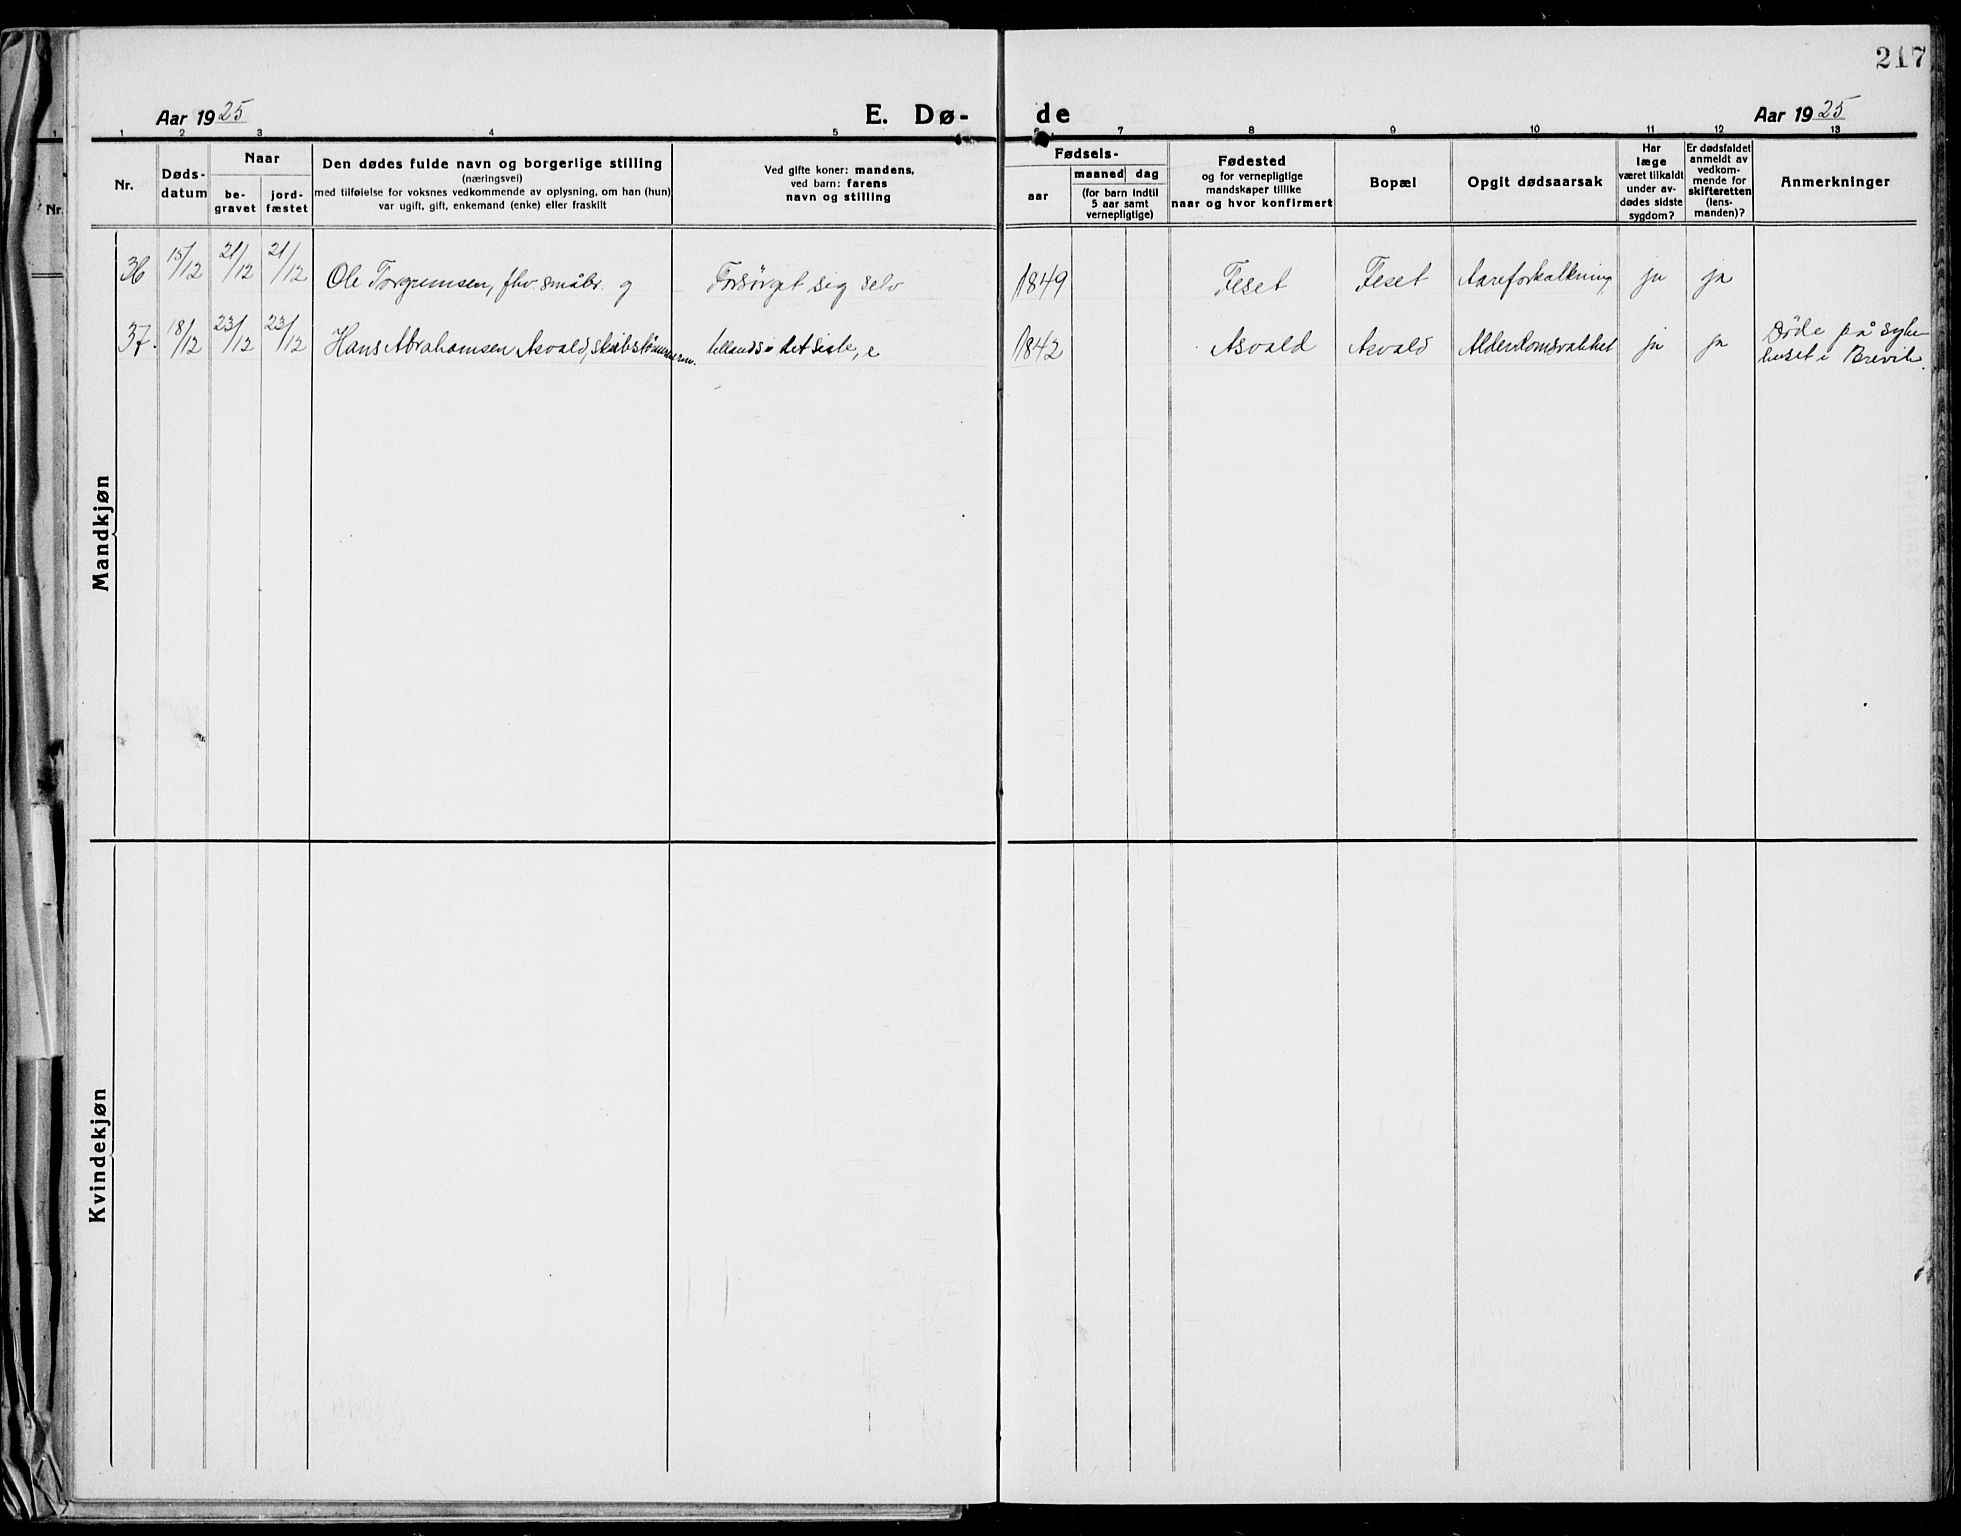 217
Aar 1925
E. Dø-
de
Aar 1925
1 2 3 4 5 6 7 8 9 10 11 12 13
Nr.
Døds-
datum
Naar
be-
gravet
jord-
fæstet
Den dødes fulde navn og borgerlige stilling
(næringsvei)
med tilføielse for voksnes vedkommende av oplysning, om han (hun)
var ugift, gift, enkemand (enke) eller fraskilt
Ved gifte koner: mandens,
ved barn: farens
navn og stilling
Fødsels-
aar
maaned dag
(for barn indtil
5 aar samt
vernepligtige)
Fødested
og for vernepligtige
mandskaper tillike
naar og hvor konfirmert
Bopæl
Opgit dødsaarsak
Har
læge
været tilkaldt
under av-
dødes sidste
sygdom?
Er dødsfaldet
anmeldt av
vedkom-
mende for
skifteretten
(lens-
manden)?
Anmerkninger
Mandkjøn
36 15/12 21/12 21/12 Ole Torgrimsen, fhv. småbr. g Forsørget sig selv 1849 Feset Feset Aareforkalkning ja ja
37. 18/12 23/12 23/12 Hans Abrahamsen Asvald, skibstømmerm. tillands i det siste, e 1842 Asvald Asvald Alderdomsvakhet ja ja Døde på syke-
huset i Brevik.
Kvindekjøn
1
Nr.